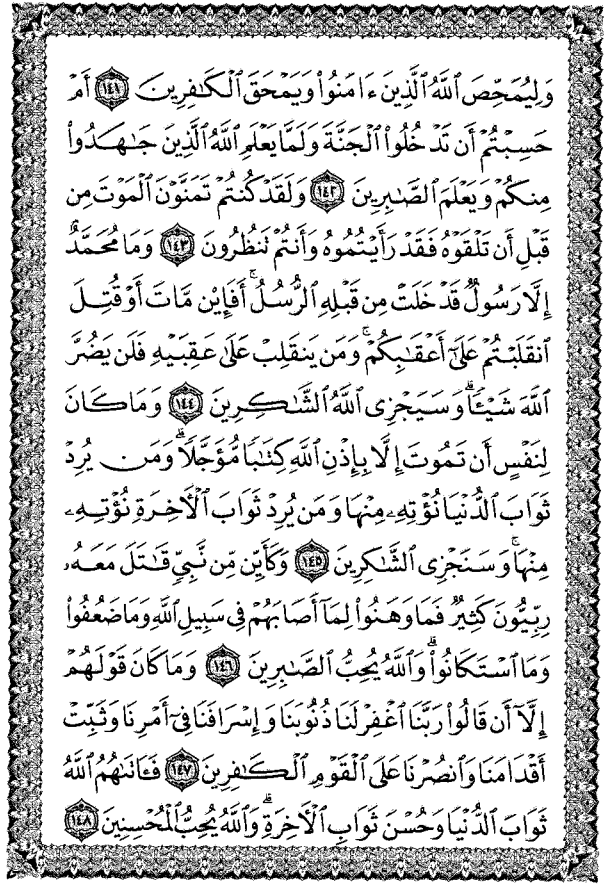 وَلِيُمَحِّصَ ٱللَّهُ ٱلَّذِينَ ءَامَنُوا۟ وَيَمْحَقَ ٱلْكَـٰفِرِينَ ١٤١ أَمْ
حَسِبْتُمْ أَن تَدْخُلُوا۟ ٱلْجَنَّةَ وَلَمَّا يَعْلَمِ ٱللَّهُ ٱلَّذِينَ جَـٰهَدُوا۟
مِنكُمْ وَيَعْلَمَ ٱلصَّـٰبِرِينَ ١٤٢ وَلَقَدْ كُنتُمْ تَمَنَّوْنَ ٱلْمَوْتَ مِن
قَبْلِ أَن تَلْقَوْهُ فَقَدْ رَأَيْتُمُوهُ وَأَنتُمْ تَنظُرُونَ ١٤٣ وَمَا مُحَمَّدٌ
إِلَّا رَسُولٌ قَدْ خَلَتْ مِن قَبْلِهِ ٱلرُّسُلُ ۚ أَفَإِي۟ن مَّاتَ أَوْ قُتِلَ
ٱنقَلَبْتُمْ عَلَىٰٓ أَعْقَـٰبِكُمْ ۚ وَمَن يَنقَلِبْ عَلَىٰ عَقِبَيْهِ فَلَن يَضُرَّ
ٱللَّهَ شَيْـًٔا ۗ وَسَيَجْزِى ٱللَّهُ ٱلشَّـٰكِرِينَ ١٤٤ وَمَا كَانَ
لِنَفْسٍ أَن تَمُوتَ إِلَّا بِإِذْنِ ٱللَّهِ كِتَـٰبًا مُّؤَجَّلًا ۗ وَمَن يُرِدْ
ثَوَابَ ٱلدُّنْيَا نُؤْتِهِۦ مِنْهَا وَمَن يُرِدْ ثَوَابَ ٱلْـَٔاخِرَةِ نُؤْتِهِۦ
مِنْهَا ۚ وَسَنَجْزِى ٱلشَّـٰكِرِينَ ١٤٥ وَكَأَيِّن مِّن نَّبِىٍّ قَـٰتَلَ مَعَهُۥ
رِبِّيُّونَ كَثِيرٌ فَمَا وَهَنُوا۟ لِمَآ أَصَابَهُمْ فِى سَبِيلِ ٱللَّهِ وَمَا ضَعُفُوا۟
وَمَا ٱسْتَكَانُوا۟ ۗ وَٱللَّهُ يُحِبُّ ٱلصَّـٰبِرِينَ ١٤٦ وَمَا كَانَ قَوْلَهُمْ
إِلَّآ أَن قَالُوا۟ رَبَّنَا ٱغْفِرْ لَنَا ذُنُوبَنَا وَإِسْرَافَنَا فِىٓ أَمْرِنَا وَثَبِّتْ
أَقْدَامَنَا وَٱنصُرْنَا عَلَى ٱلْقَوْمِ ٱلْكَـٰفِرِينَ ١٤٧ فَـَٔاتَىٰهُمُ ٱللَّهُ
ثَوَابَ ٱلدُّنْيَا وَحُسْنَ ثَوَابِ ٱلْـَٔاخِرَةِ ۗ وَٱللَّهُ يُحِبُّ ٱلْمُحْسِنِينَ ١٤٨